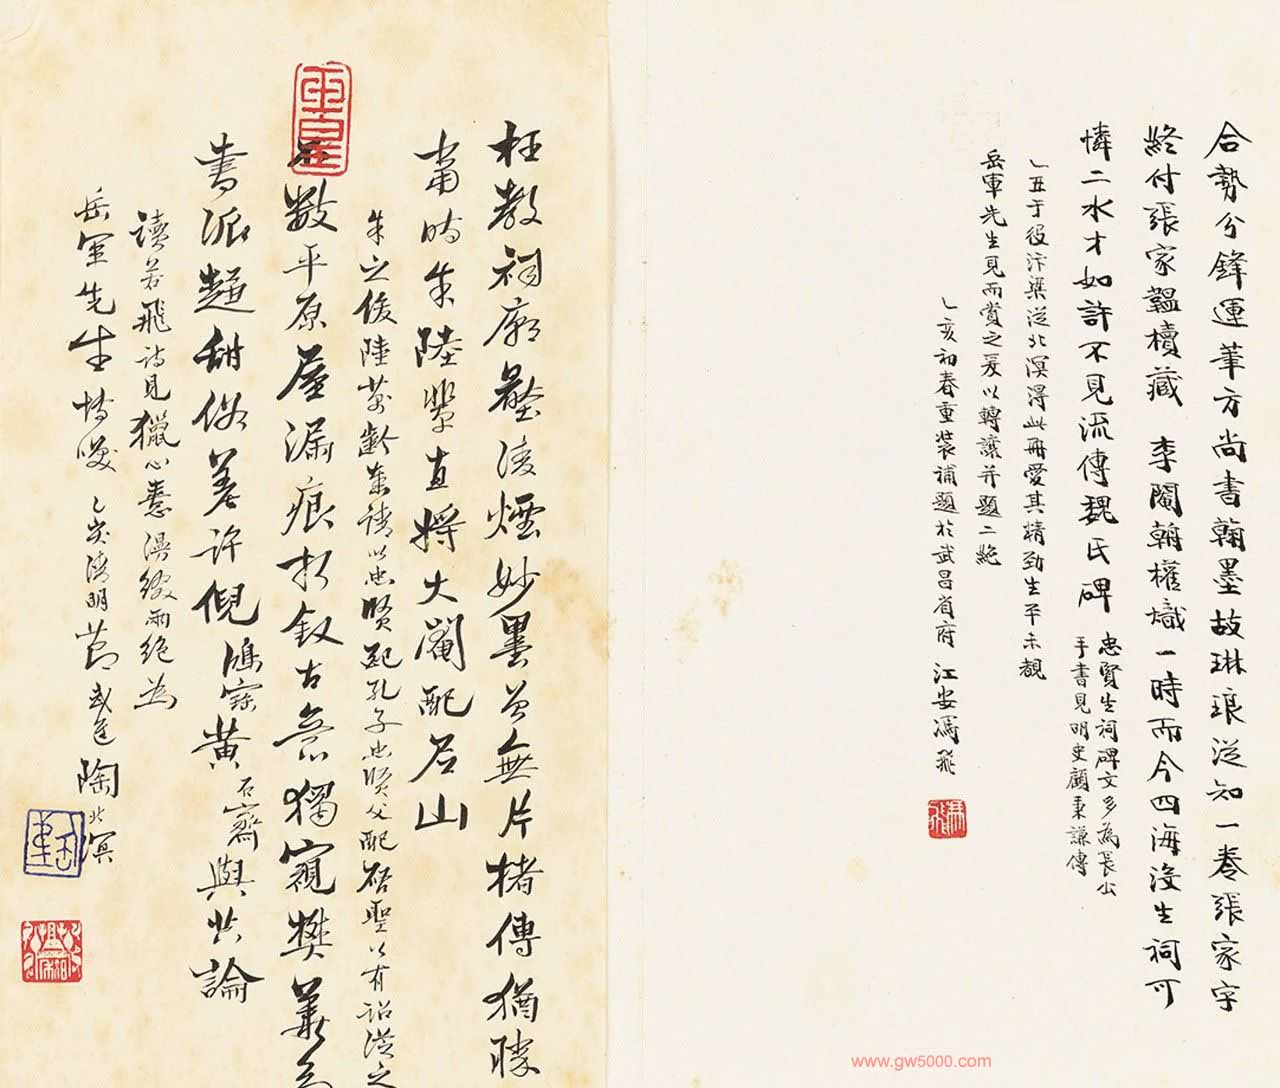 合勢分鋒運筆方尚書翰墨故琳琅從知一卷張家字
終付張家韞櫝藏 李閹翰權熾一時而今四海沒生祠可
憐二水才如許不見流傳魏氏碑 忠賢生祠碑文多為長公
手書見明史顧秉謙傳
乙丑于役汴梁從北溟得此冊愛其精勁生平未覯
岳軍先生見而賞之爰以轉讓并題二絕
乙亥初春重裝補題於武昌省府 江安馮飛
枉教祠廟壓淩煙妙墨曾無片楮傳猶勝
當時朱陸輩直將大閹配尼山
朱之俊陸萬齡奏請以忠賢配孔子忠賢父配啟聖公有詔從之
數平原屋漏痕折釵古意獨窺樊籬
書派趨甜俗差許倪鴻寶黃石齋與共論
讀若飛詩見獵心喜漫綴兩絕為
岳軍先生博噱 乙亥清明節 陶北溟
www.gw5000.com